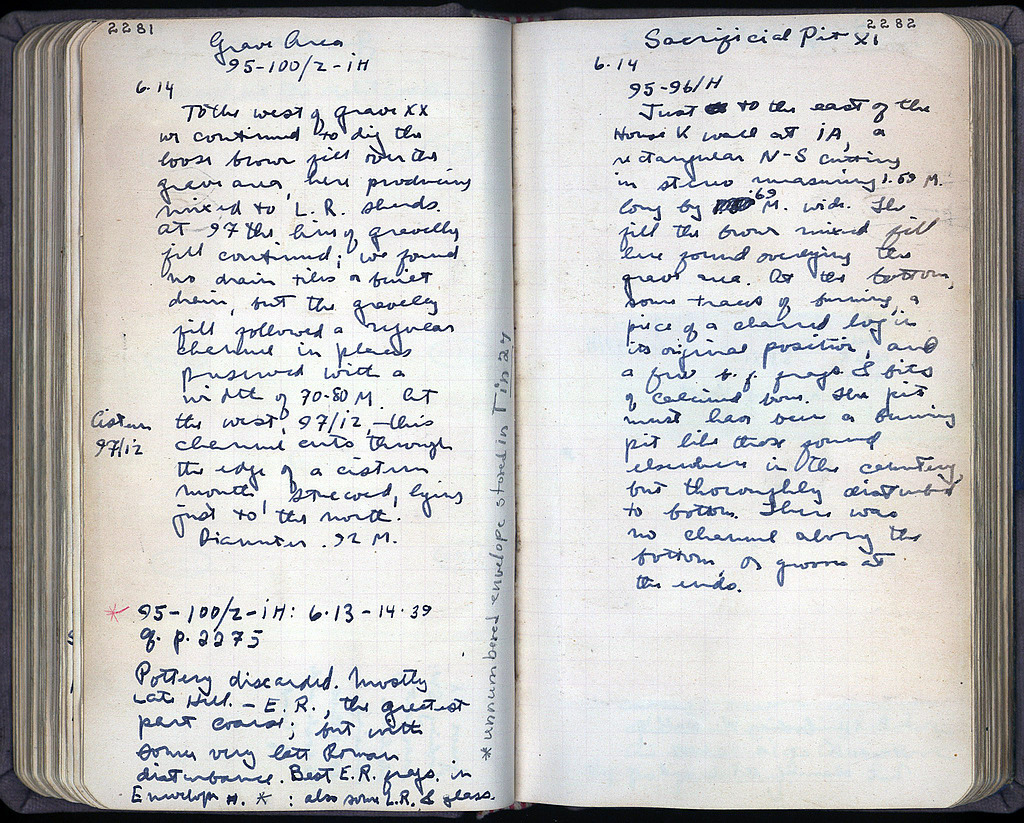 2281
Grave Area
95-100/Z-IH
6.14
To the west of grave XX
we continued to dig the
loose brown fill over the
grave area, here producing
mixed to L.R. sherds.
At 97 the line of gravelly
fill continued; we found
no drain tiles or built
drain, but the gravelly
fill followed a regular
channel in places
preserved with a
width of 70-80 M. At
the west, 97/IZ, this
channel cuts through
the edge of a cistern
mouth, stuccoed, lying
just to the north.
Diameter .92 M.
Cistern
97/IZ
* 95-100/Z-IH: 6.13-14.39
cf. p. 2275
Pottery discarded. Mostly
Late Hell. - E.R., the greatest
part coarse; but with
some very late Roman
disturbance. Best E.R. frags. in
Envelope #. * : also some L.R. & glass.
*unnumbered envelope stored in Tin 27
2282
Sacrificial Pit XI
6.14
95-96/H
Just to the east of the
House K wall at IA, a
rectangular N-S cutting
in stereo measuring 1.59 M.
long by .69 M. wide. The
fill the brown mixed fill
here found overlying the
grave area. At the bottom,
some traces of burning, a
piece of a charred log in
its original position, and
a few b.f. frags. & bits
of calcined bone. The pit
must have been a burning
pit like those found
elsewhere in the cemetery,
but thoroughly disturbed
to bottom. There was
no channel along the
bottom, or groove at
the ends.